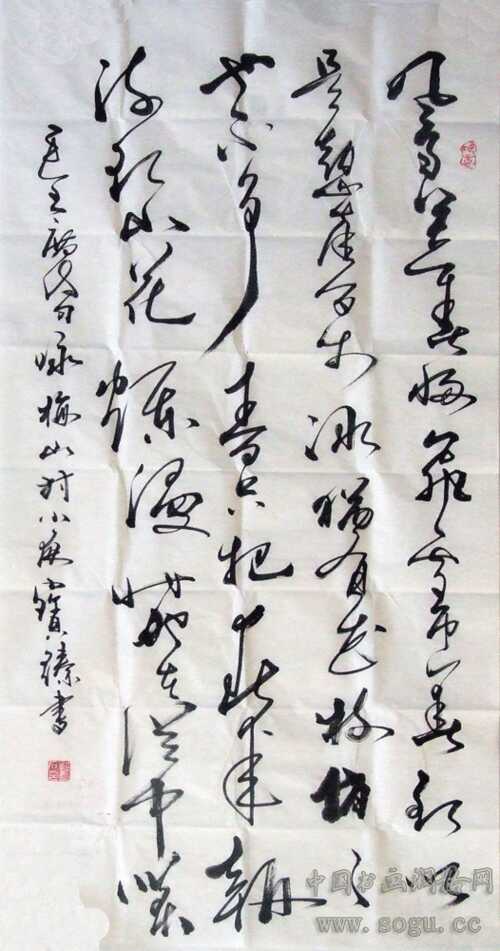 风雨送春归飞雪迎春到已
是悬崖百丈冰犹有花枝俏
也不争春只把春来报
待到山花烂漫她在丛中笑
毛主席词咏梅山村小宝臻书
中国书画网
www.sogu.cc